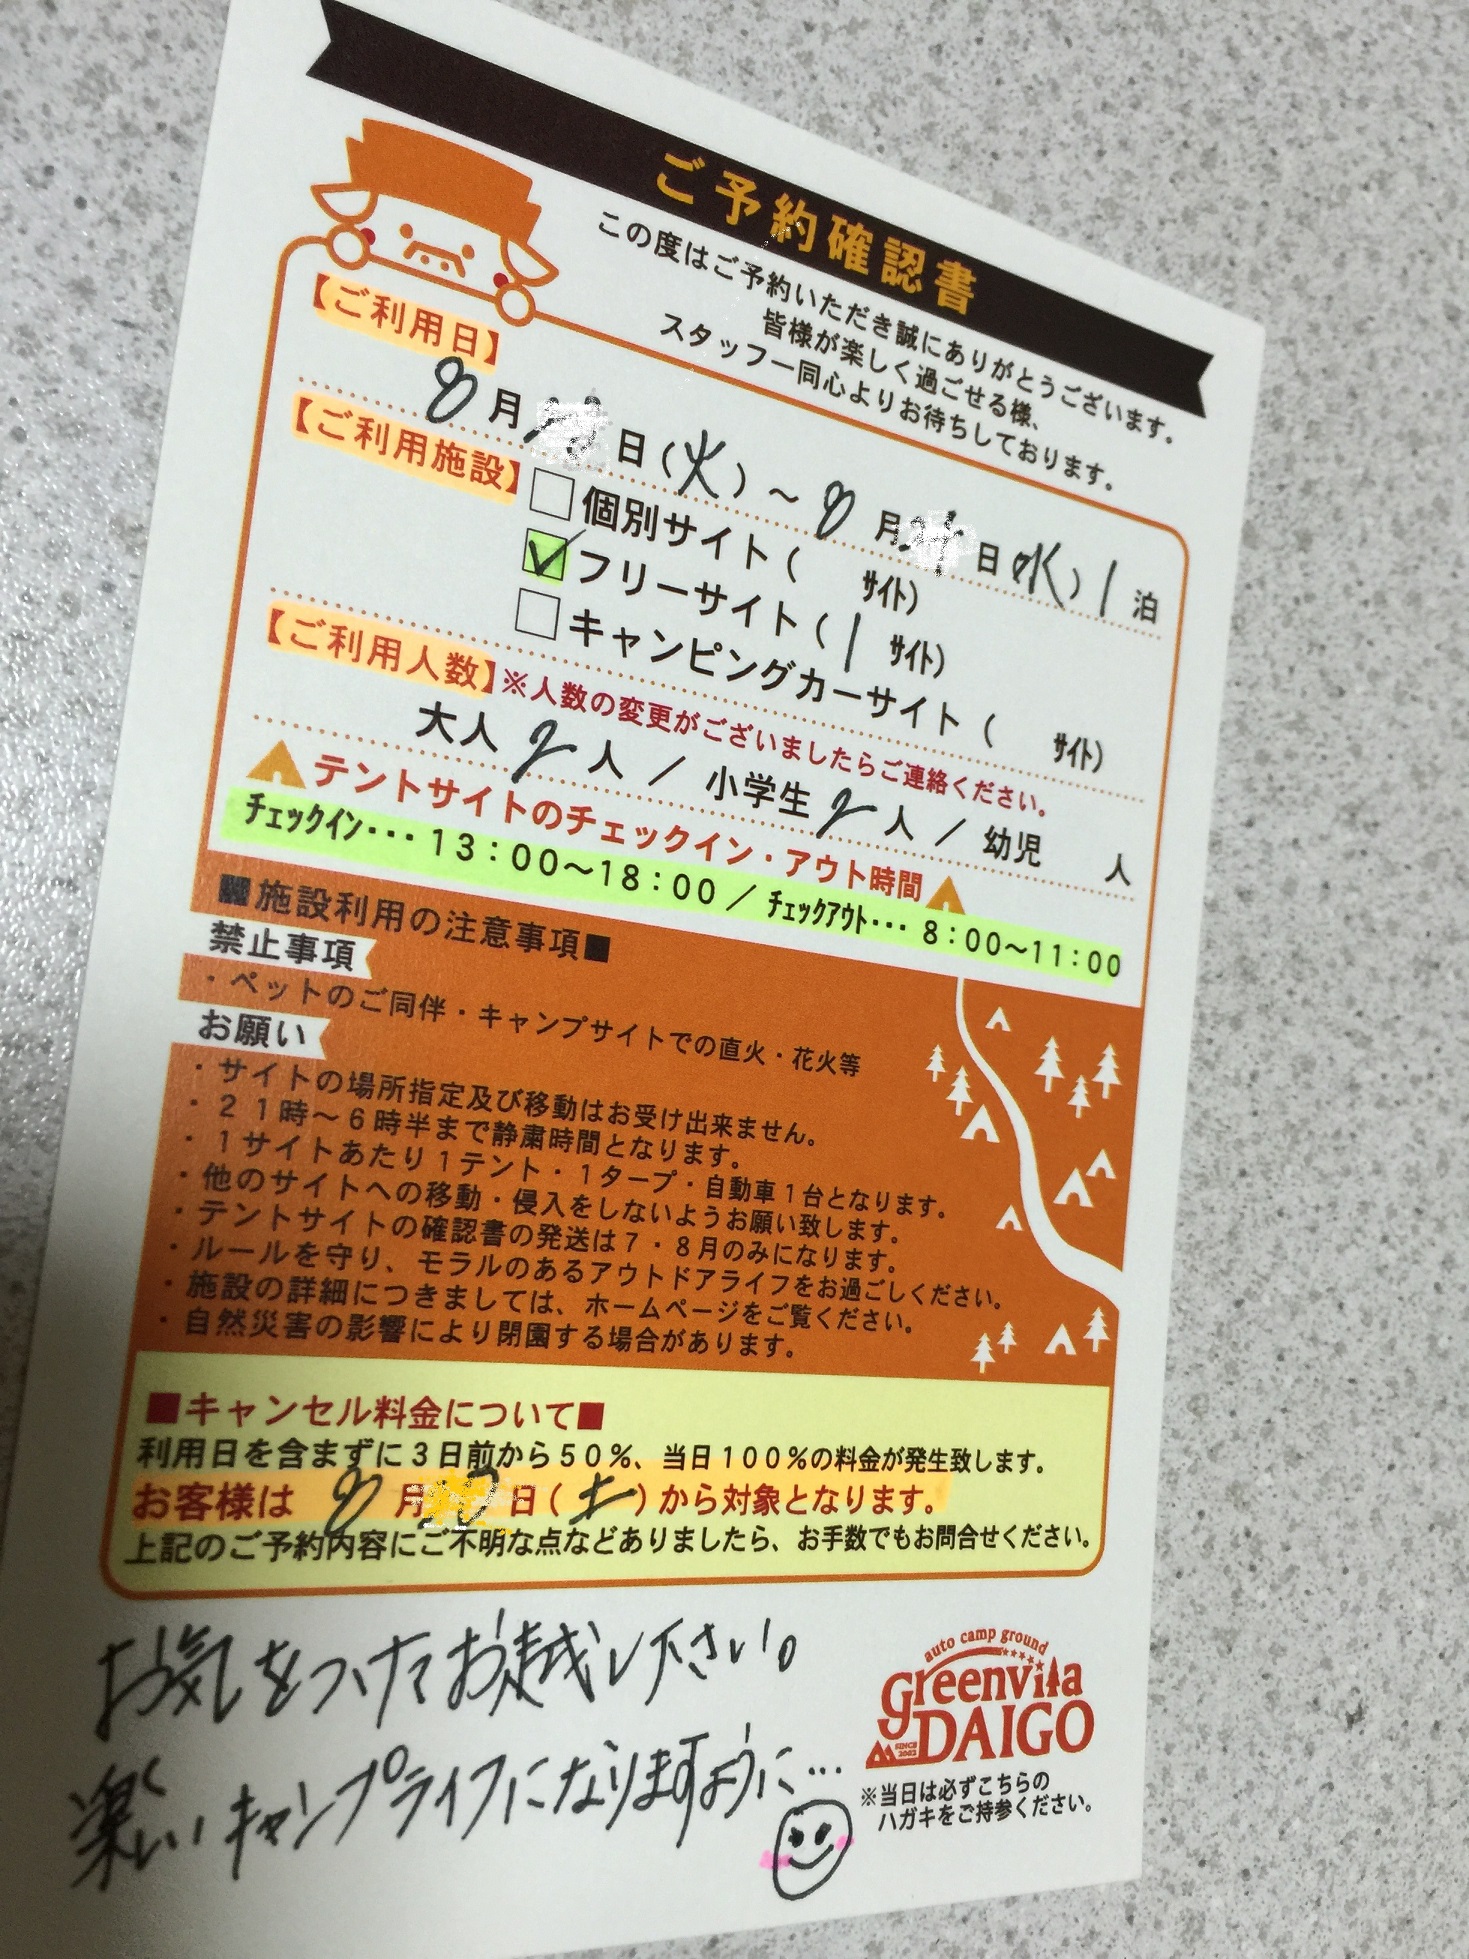 ご予約確認書
この度はご予約いただき誠にありがとうございます。
皆様が楽しく過ごせる様、
スタッフ一同心よりお待ちしております。
【ご利用日】
8月 日(火)～8月 日(水)1泊
【ご利用施設】
個別サイト( サイト)
フリーサイト(1 サイト)
キャンピングカーサイト( サイト)
【ご利用人数】※人数の変更がございましたらご連絡ください。
大人2人/小学生2人/幼児 人
テントサイトのチェックイン・アウト時間
チェックイン･･･13：00～18：00/チェックアウト･･･8：00～11：00
■施設利用の注意事項■
禁止事項
・ペットのご同伴・キャンプサイトでの直火・花火等
お願い
・サイトの場所指定及び移動はお受け出来ません。
・21時～6時半まで静粛時間となります。
・1サイトあたり1テント・1タープ・自動車1台となります。
・他のサイトへの移動・侵入をしないようお願い致します。
・テントサイトの確認書の発送は7・8月のみになります。
・ルールを守り、モラルのあるアウトドアライフをお過ごしください。
・施設の詳細につきましては、ホームページをご覧ください。
・自然災害の影響により閉園する場合があります。
■キャンセル料金について■
利用日を含まずに3日前から50％、当日100％の料金が発生致します。
お客様は 8月 日(土)から対象となります。
上記のご予約内容にご不明な点などありましたら、お手数でもお問合せください。
お気をつけてお越し下さい。
楽しいキャンプライフになりますように…
auto camp ground
Greenvila
DAIGO
SINCE 2002
※当日は必ずこちらの
ハガキをご持参ください。